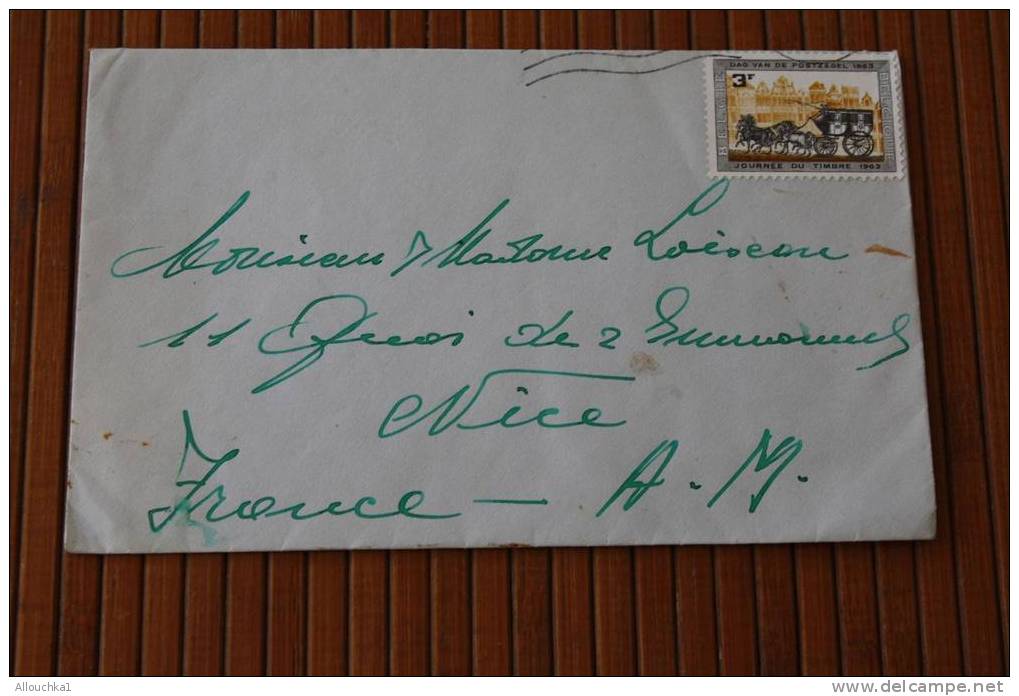 DAG VAN DE POSTZEGEL 1963
3F
BELGIE
BELGIQUE
JOURNÉE DU TIMBRE 1963
Monsieur & Madame Loiseau
11 Quai de 2 Emmanuel
Nice
France - A.M.
Allouchka1
www.delcampe.net